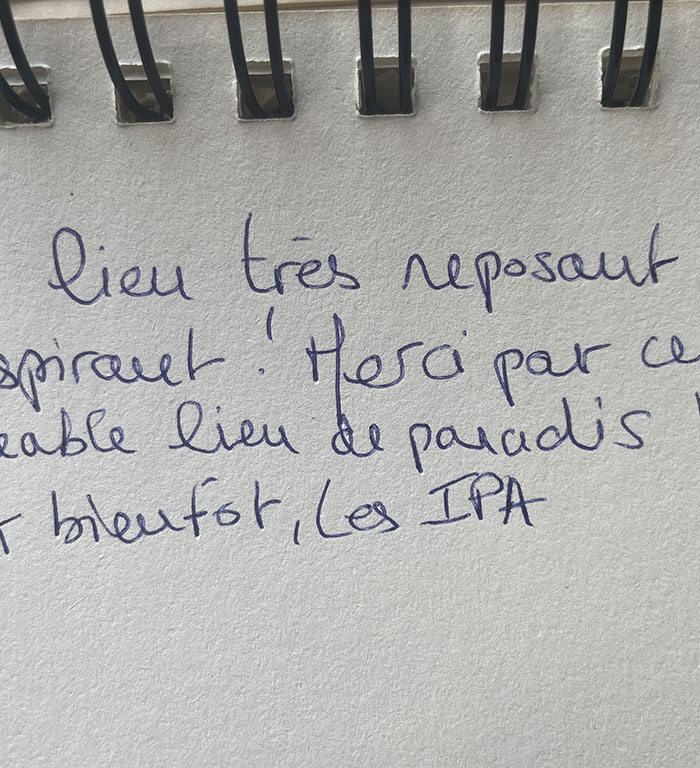 lieu très reposant
spirant ! Merci par ce
eable lieu de paradis !
bientôt, Les IPA